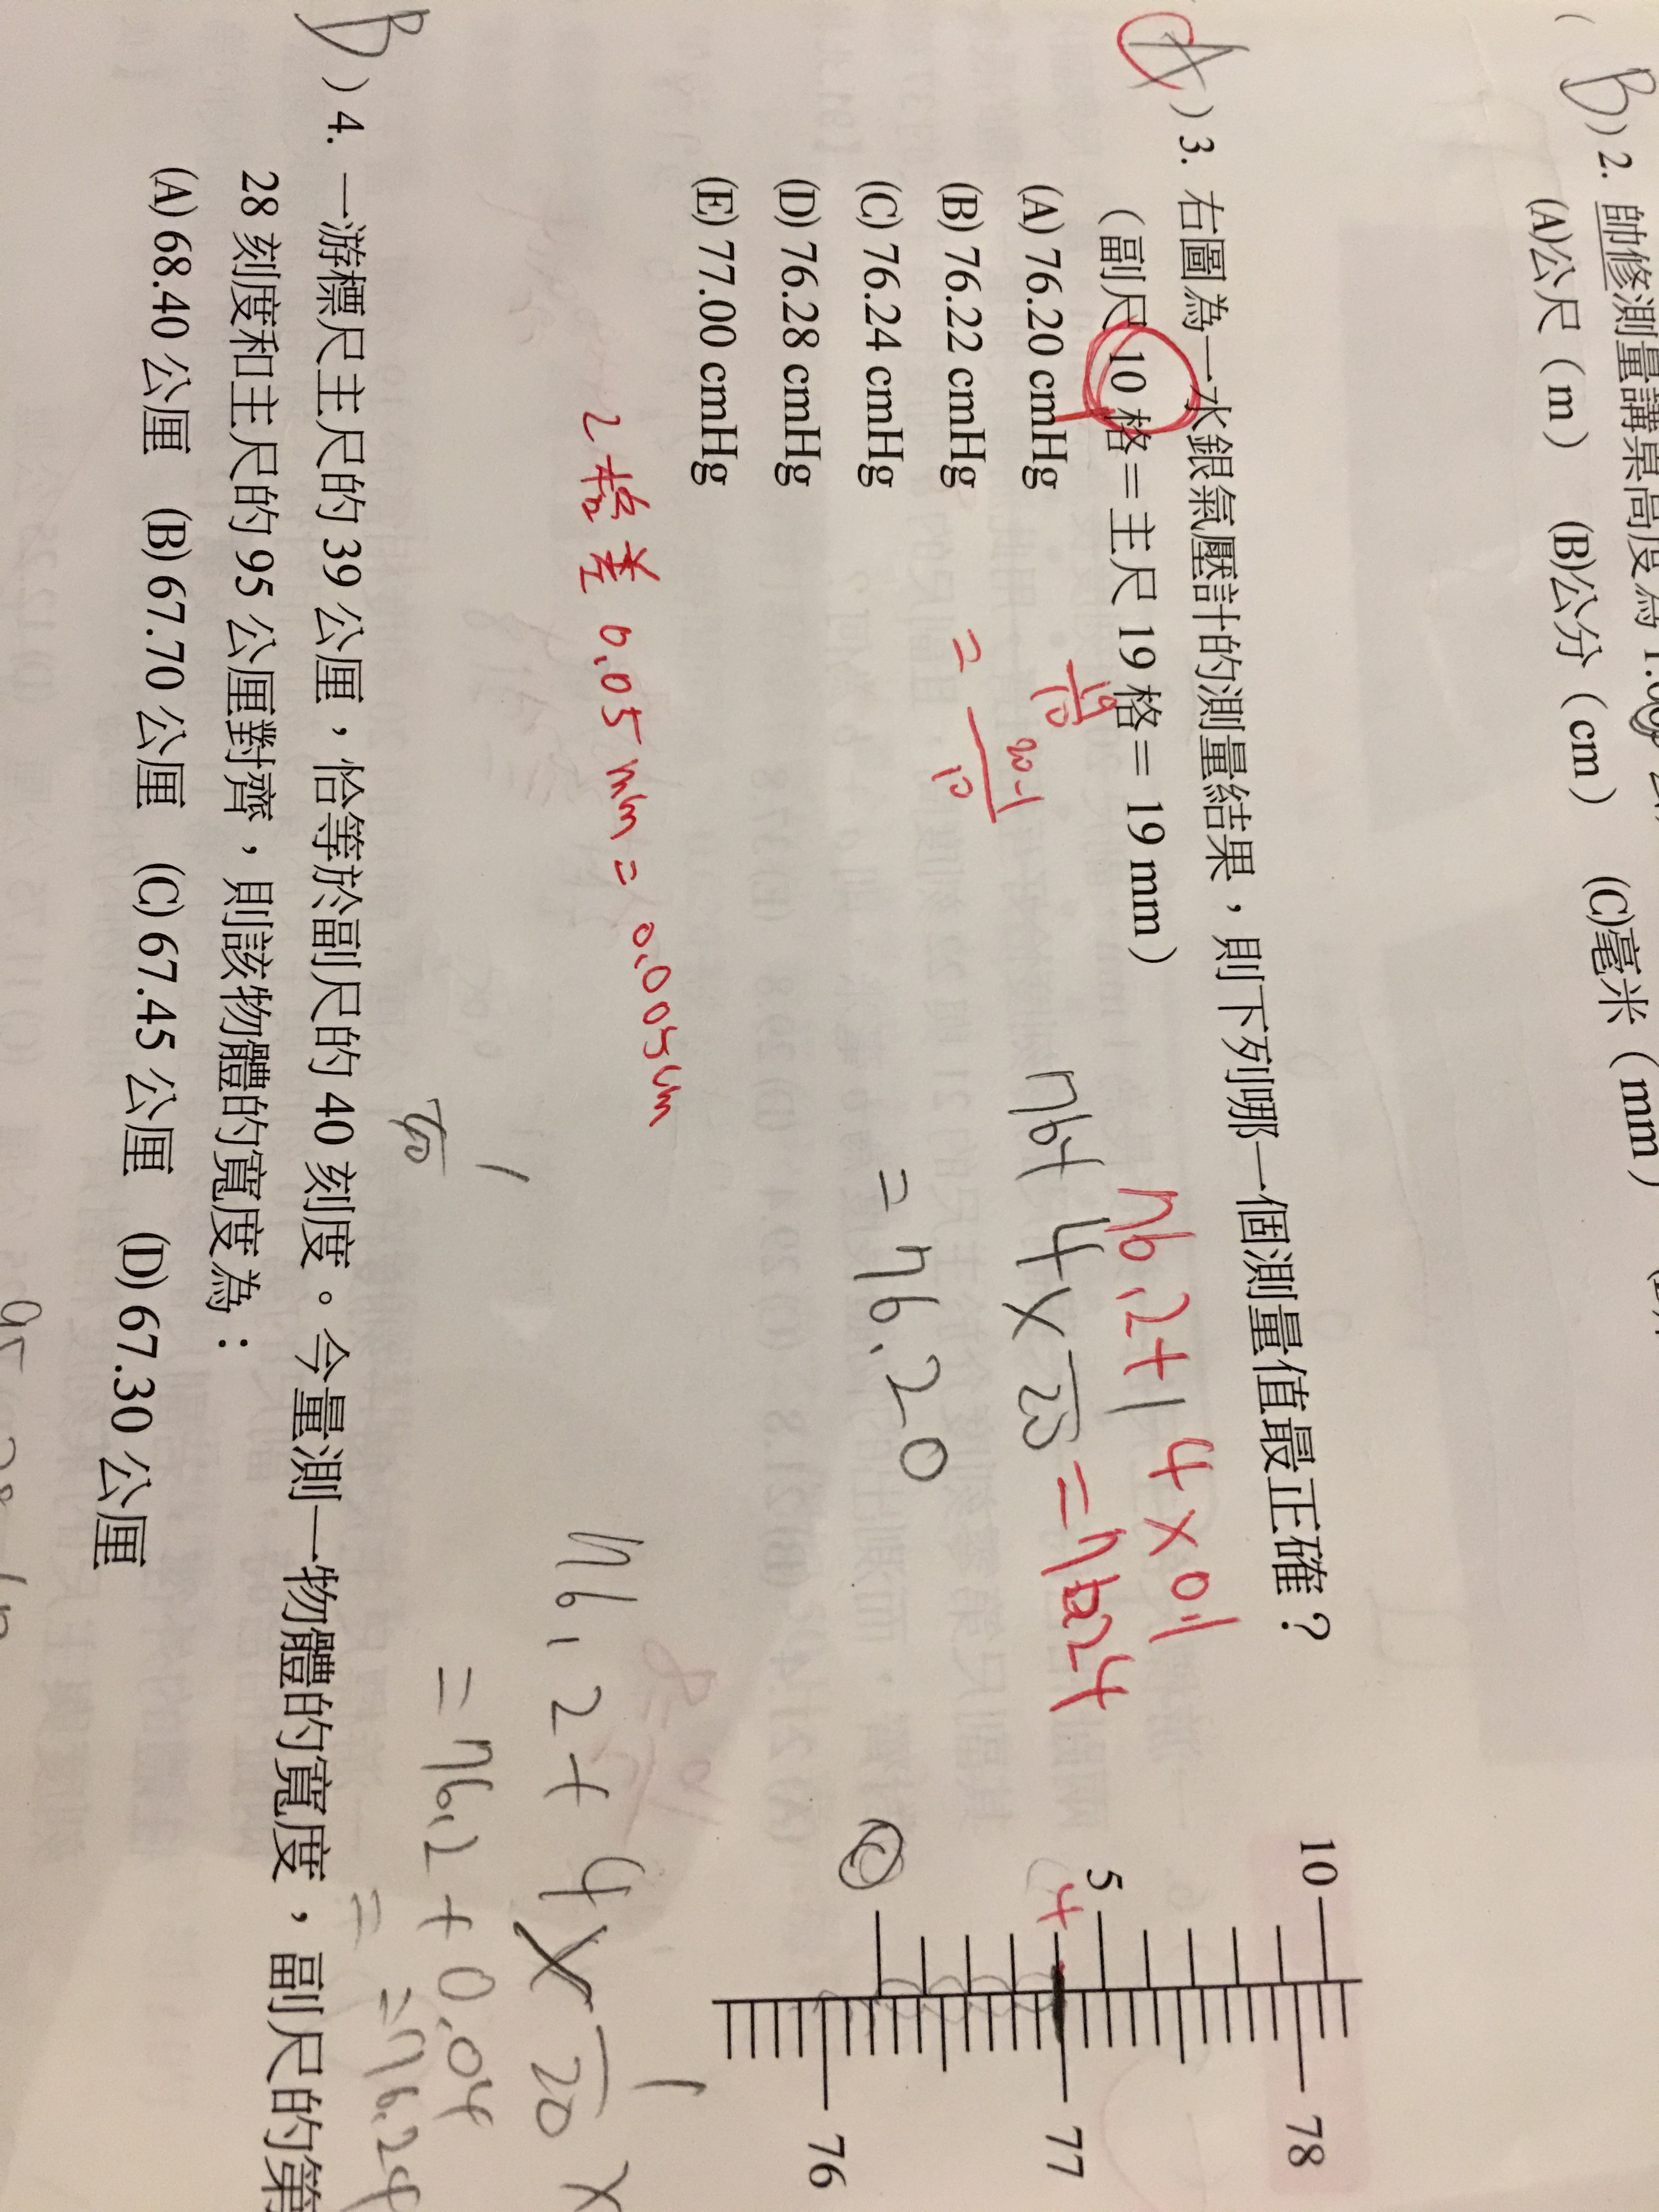 B)2. 帥修測量講桌高度為 1.00
(A)公尺（m） (B)公分（cm） (C)毫米（mm）
A)3. 右圖為一水銀氣壓計的測量結果，則下列哪一個測量值最正確？
（副尺 10 格＝主尺 19 格＝ 19 mm）
(A) 76.20 cmHg
(B) 76.22 cmHg
(C) 76.24 cmHg
(D) 76.28 cmHg
(E) 77.00 cmHg
19/10
= 20-1/10
2格差 0.05 mm = 0.005cm
76.2+ 4×0.1
= 76.24
= 76.20
76.2 + 4 × 1/20 ×
= 76.2 + 0.04
= 76.24
10
5
4
0
78
77
76
1/40
B)4. 一游標尺主尺的 39 公厘，恰等於副尺的 40 刻度。今量測一物體的寬度，副尺的第
28 刻度和主尺的 95 公厘對齊，則該物體的寬度為：
(A) 68.40 公厘 (B) 67.70 公厘 (C) 67.45 公厘 (D) 67.30 公厘
95